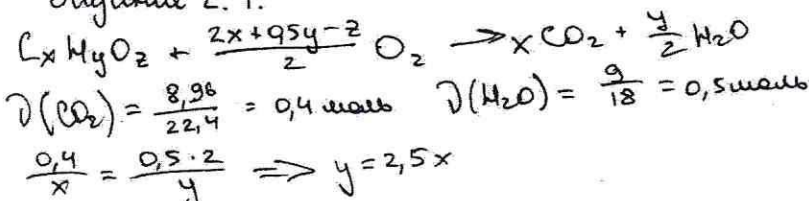 Задание 2. 1.
CxHyOz + (2x+0,5y-z)/2 O₂ → xCO₂ + y/2 H₂O
ν(CO₂) = 8,96/22,4 = 0,4 моль ν(H₂O) = 9/18 = 0,5 моль
0,4/x = 0,5·2/y => y = 2,5x